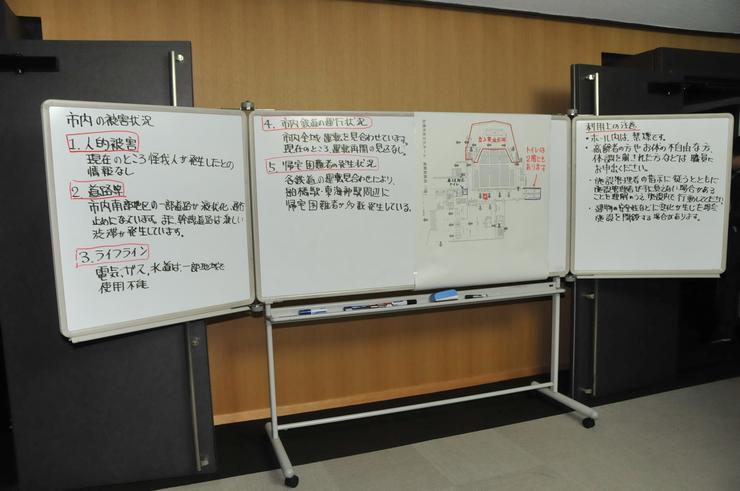 市内の被害状況
1. 人的被害
現在のところ怪我人が発生したとの
情報なし
2. 道路等
市内南部地区の一部道路が液状化、通行
止めになっています。また、幹線道路は激しい
渋滞が発生しています。
3. ライフライン
電気、ガス、水道は、一部地域で
使用不能
4. 市内鉄道の運行状況
市内全域、運転を見合わせています。
現在のところ、運転再開の見込なし。
5. 帰宅困難者の発生状況
各鉄道の運転見合わせにより、
船橋駅・東海神駅周辺に
帰宅困難者が多数発生している。
トイレは
2階にも
あります
利用上の注意
・ホール内は、禁煙です。
・高齢者の方やお体の不自由な方、
体調を崩された方などは職員に
お申出ください。
・施設管理者の指示に従うとともに
施設管理者が手に負えない場合がある
ことを理解のうえ、
行動してください。
・建物の安全性などに変化が生じた場合
施設を閉鎖する場合があります。